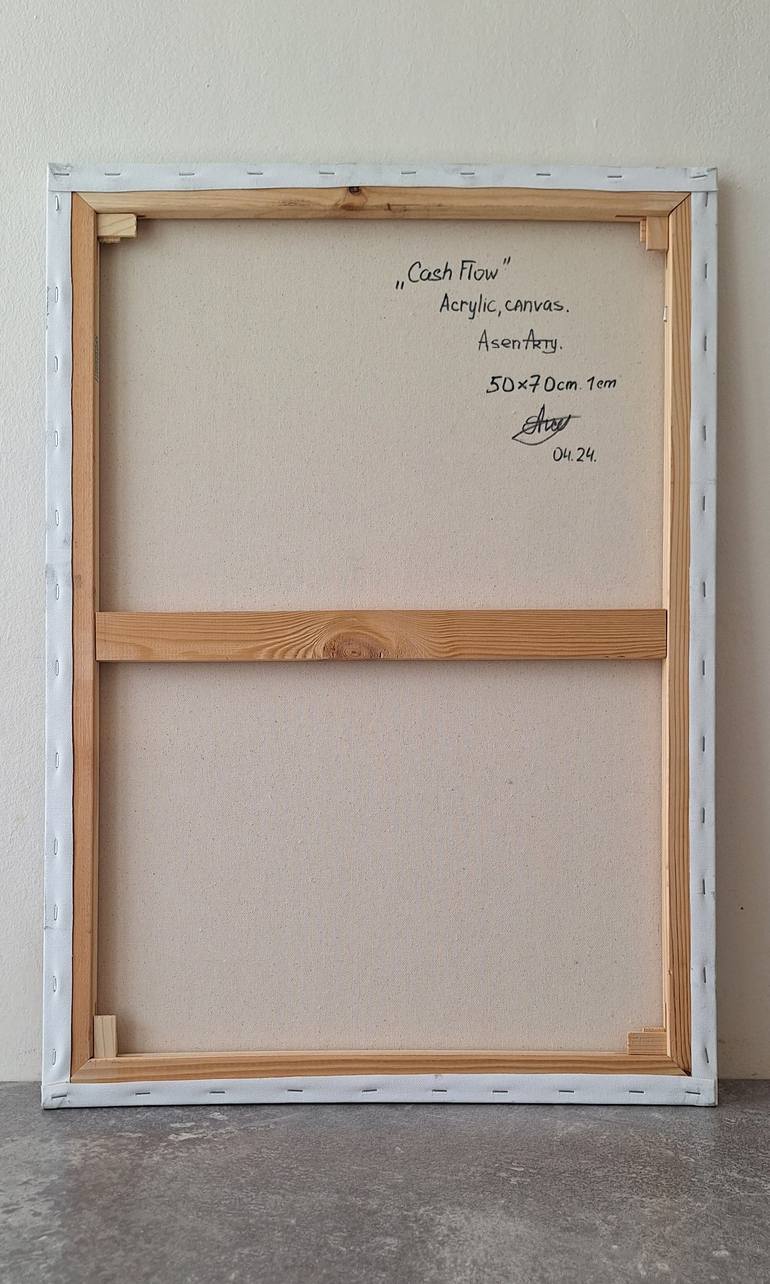 „Cash Flow”
Acrylic, canvas.
AsenArty.
50×70cm. 1cm
04.24.